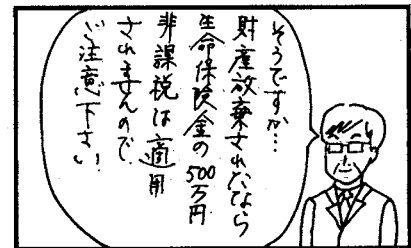 そうですか…
財産放棄されたなら
生命保険金の500万円
非課税は適用
されませんので
ご注意下さい